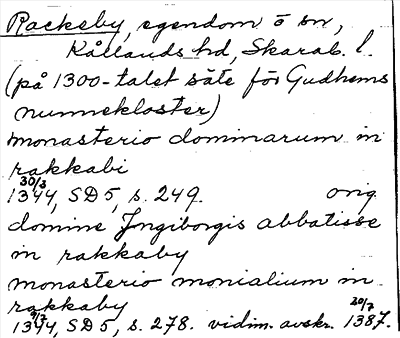 Rackeby, egendom o sn,
Kållands hd, Skarab. l.
(på 1300-talet säte för Gudhems
nunnekloster)
monasterio dominarum in
rakkabi
30/3 1344, SD 5, s. 249. orig.
domine Jngiborgis abbatisse
in rakkaby
monasterio monialium in
rakkaby
9/7 1344, SD 5, s. 278. vidim. avskr. 20/7 1387.